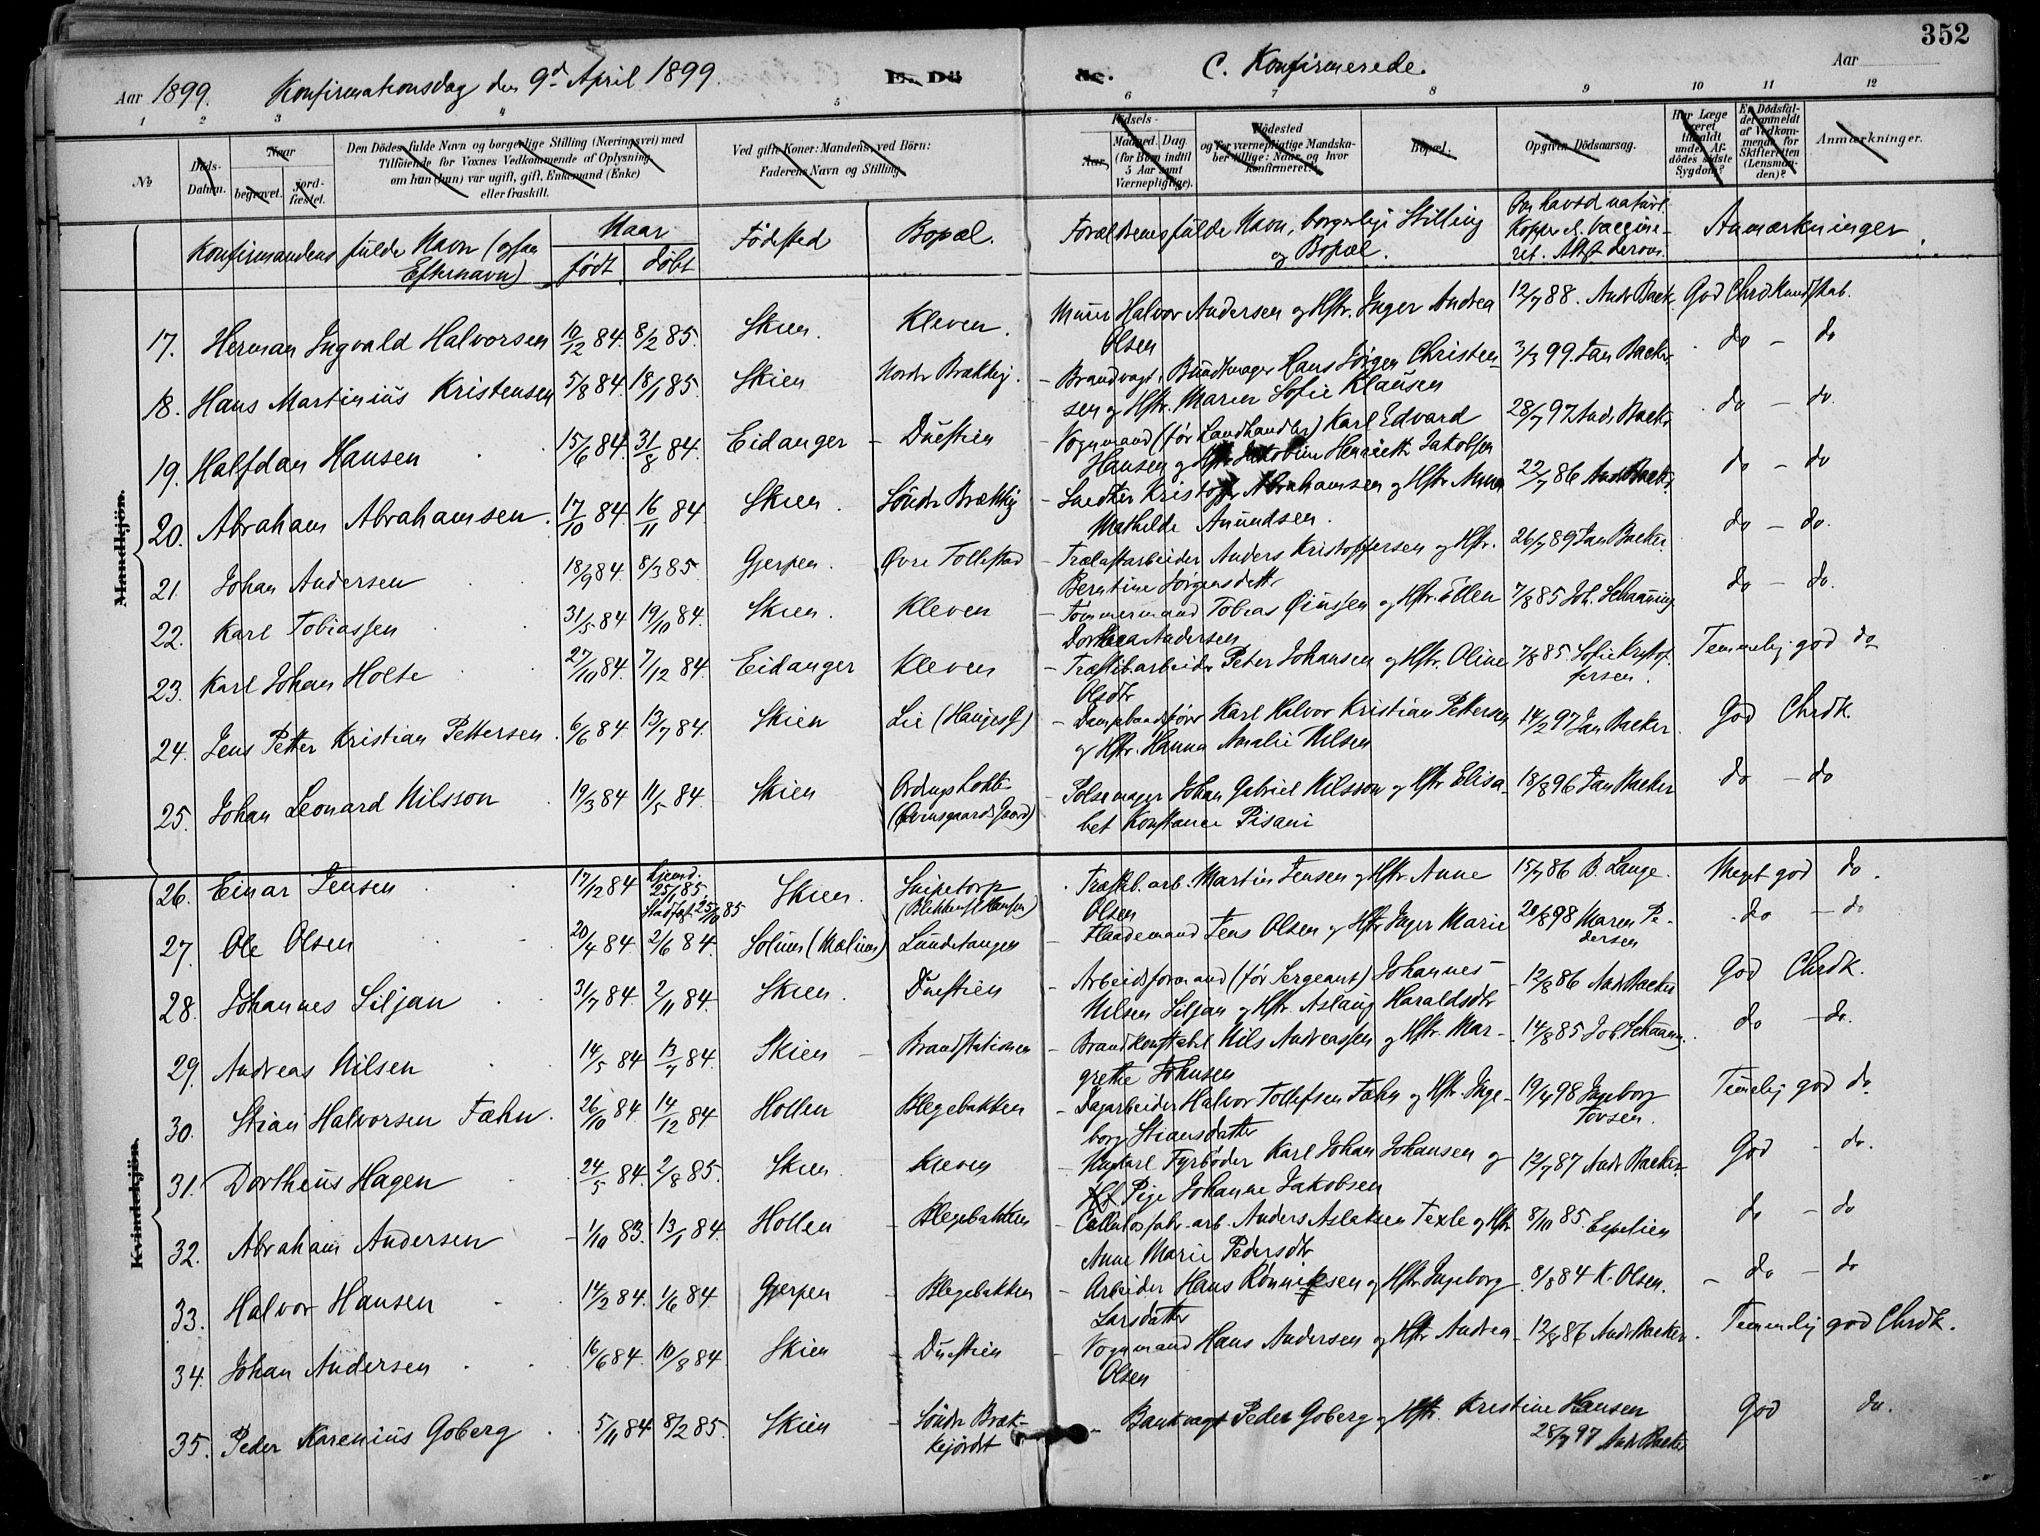 352
Aar 1899. Konfirmationsdag den 9d April 1899. C. Konfirmerede. Aar
1 2 3 4 5 6 7 8 9 10 11 12
№
Döds-Datum.
Naar
begravet. jord-fæstet.
Den Dödes fulde Navn og borgerlige Stilling (Næringsvei) med
Tilföiende for Voxnes Vedkommende af Oplysning
om han (hun) var ugift, gift, Enkemand (Enke)
eller fraskilt.
Ved gifte Koner: Mandens, ved Börn:
Faderens Navn og Stilling.
Födsels-
Aar, Maaned, Dag.
(for Börn indtil
5 Aar samt
Værnepligtige).
Födested
og for værnepligtige Mandska-
ber tillige: Naar og hvor
konfirmeret.
Bopæl.
Opgiven Dödsaarsag.
Har Læge
været
tilkaldt
under Af-
dödes sidste
Sygdom?
Er Dödsfal-
det anmeldt
af Vedkom-
mende for
Skifteretten
(Lensman-
den)?
Anmærkninger.
Konfirmandens fulde Navn (ogsaa Efternavn)
Naar
født døbt
Fødested
Bopæl.
Forældrenes fulde Navn, borgerlige Stilling
og Bopæl.
Om havt naturl.
Kopper el. vaccine-
ret. Attest derom.
Anmærkninger
Mandkjön.
17. Herman Ingvald Halvorsen 10/12 84. 8/2 85. Skien. Kleven. Murer Halvor Andersen og Hstr. Inger Andrea 12/7 88. Andr. Backer God Chrd.Kundskab.
Olsen
18. Hans Martinius Kristensen 5/8 84. 18/1 85. Skien Nordr Brækkej. Brandvagt, Buntmager Hans Jørgen Christen- 3/3 99. Jan Backer do - do
sen og Hstr. Maren Sofie Klausen
19. Halfdan Hansen 15/6 84. 31/8 84. Eidanger - Duestien - Vognmand (før Landhandler) Karl Edvard 28/7 97. Andr. Backer do - do
Hansen og Hstr. Jakobine Henriette Jakobsen
20. Abraham Abrahamsen. 17/10 84 16/11 84. Skien. Söndr Brækkej - Snedker Kristoffer Abrahamsen og Hstr Anna 22/7 86 Andr. Backer do - do
Mathilde Amundsen.
21. Johan Andersen 18/9 84. 8/3 85. Gjerpen. Øvre Tollestad - Trælastarbeider Anders Kristoffersen og Hstr. 26/7 89 Jan Backer do - do.
Berntine Jörgensdatter
22. Karl Tobiassen 31/5 84 19/10 84. Skien. Kleven - Tømmermand Tobias Øinssen og Hstr. Ellen 7/8 85 Joh. Schaaning do - do.
Dorthea Andersen
23. Karl Johan Holte 27/10 84. 7/12 84. Eidanger Kleven - Træslib.arbeider Peter Johansen og Hstr. Oline 7/8 85. Sofie Kristof- Temmelig god do
Olsdtr fersen.
24. Jens Petter Kristian Pettersen. 6/6 84 13/7 84. Skien Lie (Haugesg.) - Karl Halvor Kristian Pettersen 14/2 97 Jan Backer. God Chrdk.
og Hstr. Hanna Amalie Nilsen
25. Johan Leonard Nilsson 19/3 84 11/5 84. Skien - Pølsemager Johan Gabriel Nilsson og Hstr Elisa- 18/8 96 Jan Backer do - do
bet Konstance Pisani
Kvindekjön.
26. Einar Jensen 17/12 84 hjemd. 25/1 85. Stadfæst 25/10 85 Skien. Snipetorp - Træslib. arb. Martin Jensen og Hstr Anne 15/7 86 B. Lange. Meget god do.
Olsen
27. Ole Olsen 20/4 84. 2/6 84. Solum (Mælum) Lundetangen - Flaademand Jens Olsen og Hstr Inger Marie 20/8 98 Maren Pe- do - do
dersen
28. Johannes Siljan 31/7 84. 2/11 84. Skien. Duestien - Arbeidsformand (før Sergeant) Johannes 12/8 86 Andr Backer God Chrdk.
Nilsen Siljan og Hstr. Aslaug Haraldsdtr
29. Andreas Nilsen 14/5 84 13/7 84. Skien - Brandstationen - Brandkonstabel Nils Andreassen og Hstr. Mar- 14/8 85 Joh. Schaaning. do - do.
grethe Johnsen
30. Stian Halvorsen Fæhn. 26/10 84. 14/12 84 Hollen Blegebakken - Dagarbeider Halvor Tollefsen Fæhn og Hstr. Inge- 19/4 98 Ingeborg Temmelig god do
borg Stiansdatter Tovsen.
31. Dortheus Hagen 24/5 84. 2/8 85. Skien. Kleven - Ungkarl Fyrbøder Karl Johan Johansen og 12/7 87 Andr Backer God - do.
Pige Johanne Jakobsen
32. Abraham Andersen - 1/10 83. 13/1 84. Hollen - Blegebakken - Cellulosfabr.arb. Anders Aslaksen Texle og Hstr 8/10 85. Espelien do - do
Anne Marie Pedersdtr
33. Halvor Hansen 14/2 84. 1/6 84 Gjerpen - Blegebakken - Arbeider Hans Rønniksen og Hstr Ingeborg 8/8 84 K. Olsen. - do - do
Larsdatter
34. Johan Andersen 16/6 84. 10/8 84. Skien - Duestien - Vognmand Hans Andersen og Hstr Andrea 12/8 86 Andr Backer. Temmelig god Chrdk.
Olsen
35. Peder Karenius Goberg 5/11 84 8/2 85. Skien - Söndr Bræk- - Bankvagt Peder Goberg og Hstr. Kristine Hansen God do.
kejordet 28/7 97 Andr Backer